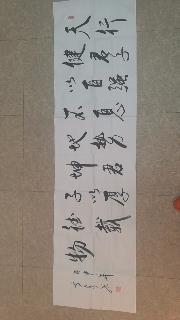 天行
健君子
以自强
不息
地势
坤君
子以厚
德载
物